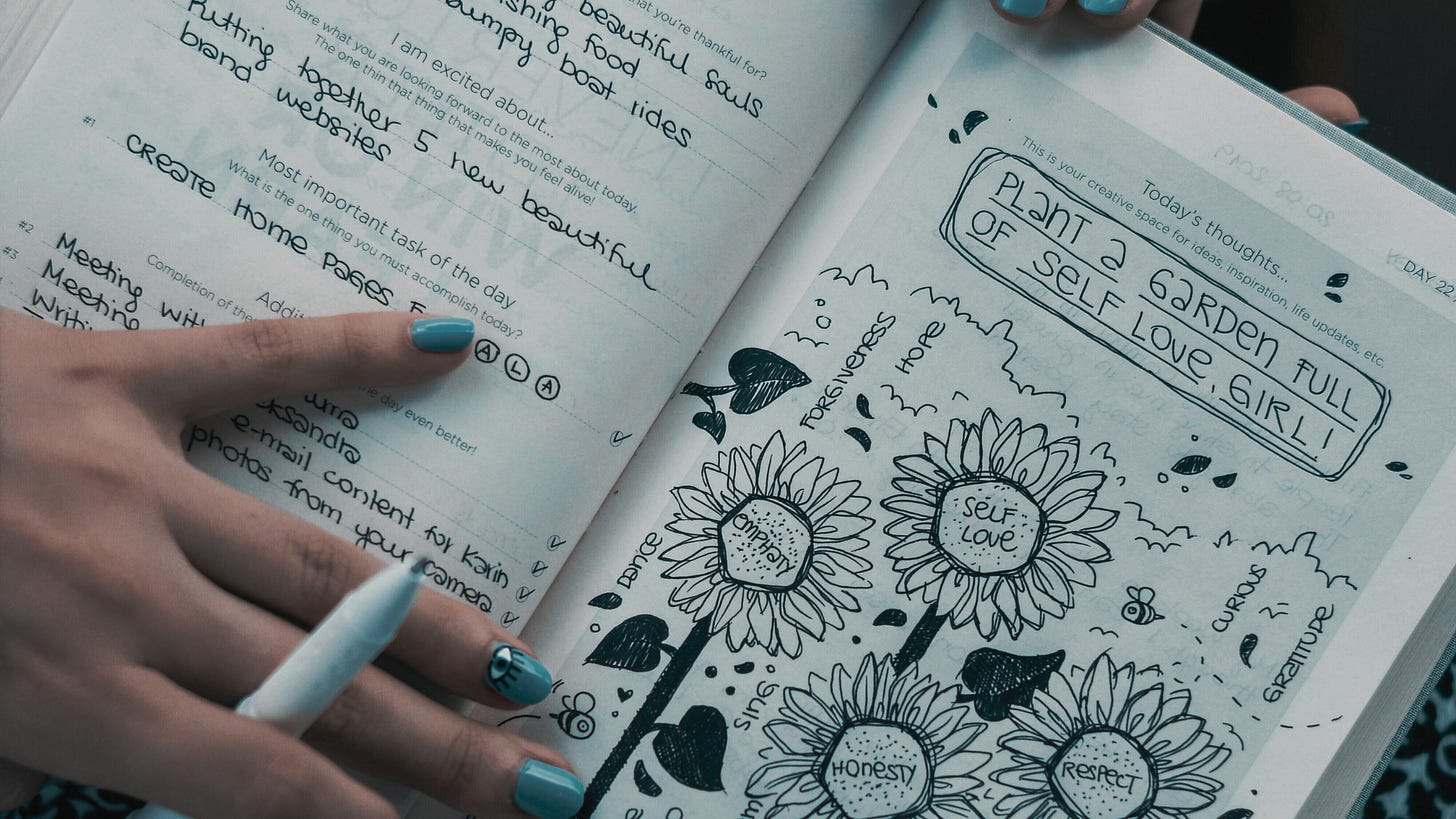 what you're thankful for?
beautiful souls
food
bumpy boat rides
I am excited about...
Share what you are looking forward to the most about today.
The one thin that thing that makes you feel alive!
Putting together 5 new beautiful
brand websites
Most important task of the day
What is the one thing you must accomplish today?
#1
CREATE HOME PAGES
A L A
Completion of the
the day even better!
#2
Meeting with
#3
Meeting
e-mail content for Karin
photos from your camera
DAY 22
Today's thoughts...
This is your creative space for ideas, inspiration, life updates, etc.
PLANT a GARDEN FULL
OF SELF LOVE, GIRL!
FORGIVENESS
HOPE
EMPHATY
SELF
LOVE
DANCE
CURIOUS
GRATITUDE
SING
HONESTY
RESPECT